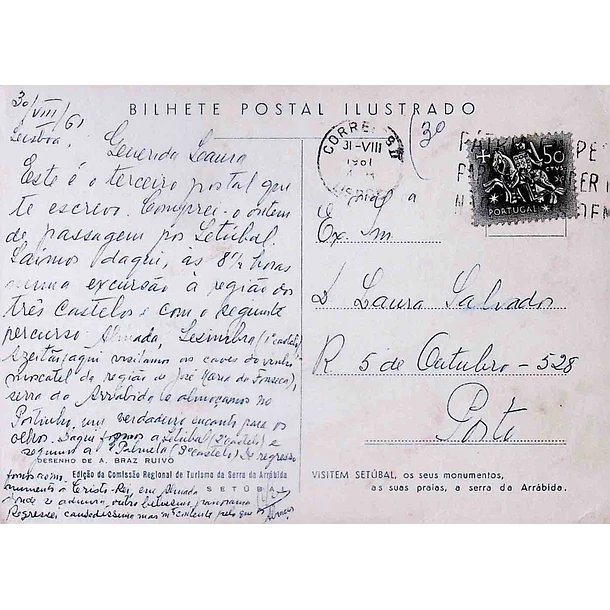 30/VIII/61
BILHETE POSTAL ILUSTRADO
Lisboa,
Querida Laura
Este é o terceiro postal que
te escrevo. Comprei-o ontem
de passagem por Setúbal.
Saímos daqui, às 8½ horas
numa excursão a região dos
três castelos e com o seguinte
percurso: Almada, Sesimbra (1º castelo)
Azeitão, aqui visitamos as caves do vinho
moscatel da região de José Maria da Fonseca,
serra da Arrábida e almoçamos no
Portinho, um verdadeiro encanto para os
olhos. Daqui fomos a Setúbal (2º castelo) e
seguimos a Palmela (3º castelo) De regresso
DESENHO DE A. BRAZ RUIVO
Edição da Comissão Regional de Turismo da Serra da Arrábida
SETÚBAL
fomos ao
monumento a Cristo-Rei, em Almada
onde se admira outro belíssimo panorama
Regressei cansadíssima mas mto contente pelo que
(3º
CORREIOS
31-VIII
1961
LISBOA
50
CTVS
PORTUGAL
Ex.ma
D Laura Salvador
R 5 de Outubro - 528
Porto
VISITEM SETÚBAL, os seus monumentos,
as suas praias, a serra da Arrábida.